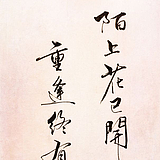 陌上花已開
重逢終有